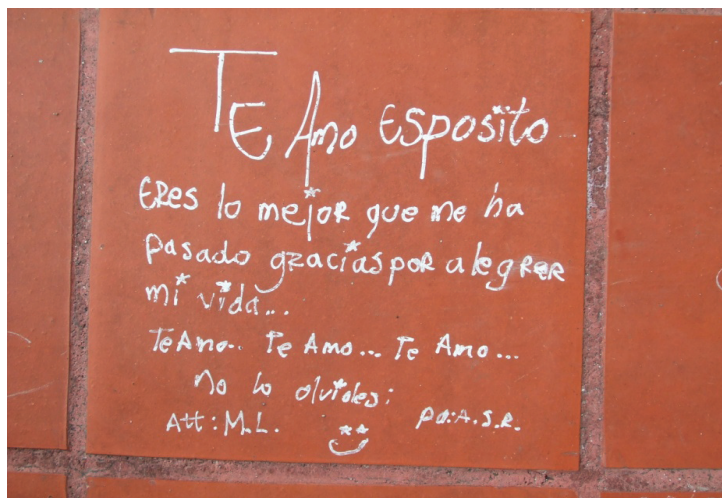 TE Amo ESPOSITO
ERES lo mejoR que me ha
pasado gracias poR alegRER
mi vida...
Te Amo.. Te Amo... Te Amo...
No lo olvides:
Att: M.L. pa: A.S.R.